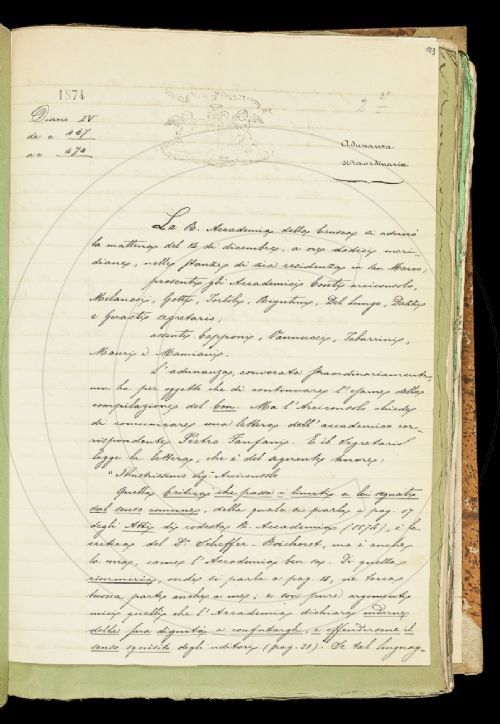 123
1874
2°
Diario IV
da c 467
a c 474
Adunanza
straordinaria
La R. Accademia della Crusca si adunò
la mattina del 16 di dicembre, a ore dodici meri-
diane, nella stanza di sua residenza in San Marco;
presenti gli Accademici Conti arciconsolo,
Milanesi, Gotti, Tabbi, Rigutini, Del Lungo, Dazzi
e Cesare segretario;
assenti Capponi, Vannucci, Tabarrini,
Mauri e Mamiani.
L'adunanza, convocata straordinariamente,
non ha per oggetto che di continuare l'esame della
compilazione del Con. Ma l'Arciconsolo chiede
di comunicare una lettera dell'accademico cor-
rispondente Pietro Fanfani. E il Segretario
legge la lettera, che è del seguente tenore:
"Illustrissimo Sig. Arciconsolo
Quella Critica che passa i limiti a lei segnati
dal senso comune, della quale si parla a pag. 17
degli Atti di codesta R. Accademia (1874), è la
critica del Dr Scheffer-Boichorst, ma è anche
la mia, come l'Accademia ben sa. Di quella
ciurmeria, onde si parla a pag. 18, ne tocca
buona parte anche a me; e son pure argomenti
miei quelli che l'Accademia dichiara indarno
della sua dignità a confutargli, e offendersene il
senso squisito degli uditori (pag. 21). De tal linguag-